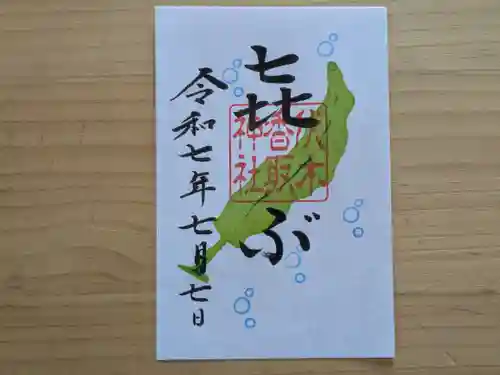 㐂ぶ
伏木
香取
神社
令和七年七月七日